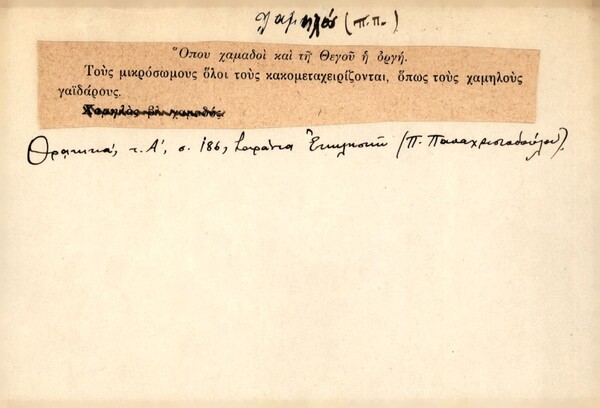 χαμηλός (π.π.)
Ὅπου χαμαδοὶ καὶ τῆ Θεγοῦ ἡ ὀργή.
Τοὺς μικρόσωμους ὅλοι τοὺς κακομεταχειρίζονται, ὅπως τοὺς χαμηλοὺς
γαϊδάρους.
Θρακικά, τ. Α', σ. 186, Σαράντα Ἐκκλησιῶν (Π. Παπαχριστοδούλου).